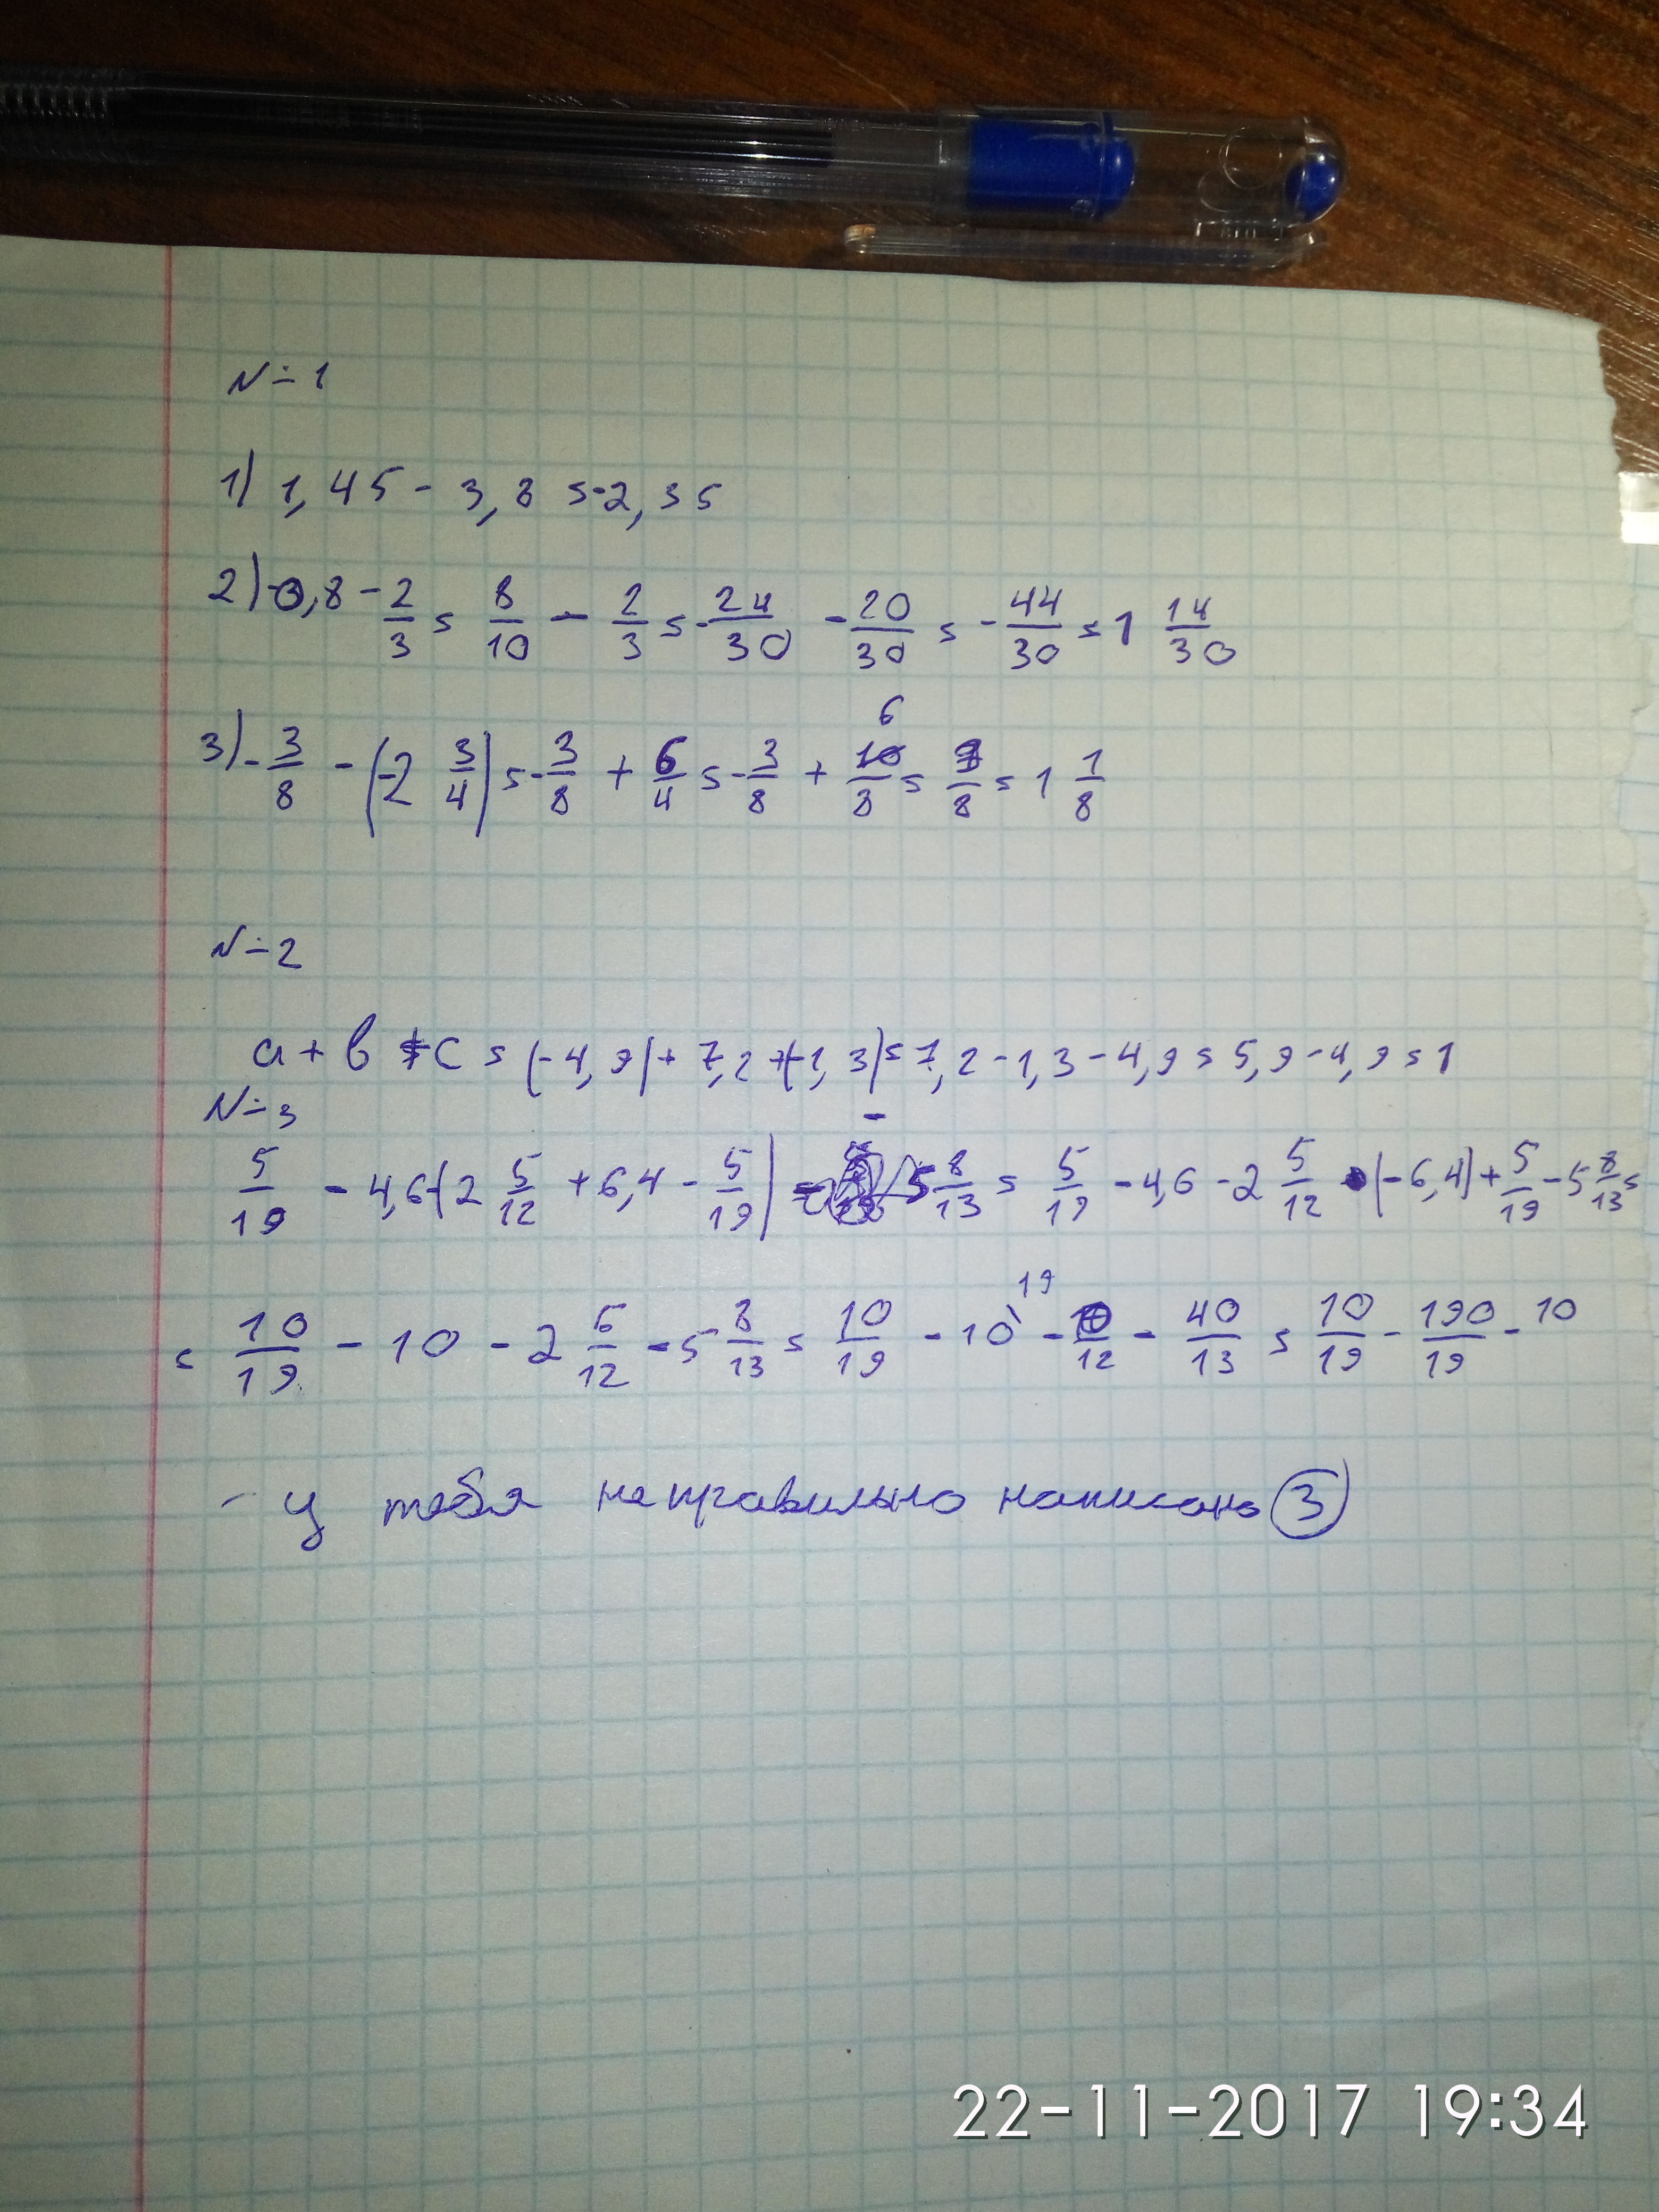 №1
1) 1,45 - 3,8 = -2,35
2) -0,8 - 2/3 = 8/10 - 2/3 = -24/30 - 20/30 = -44/30 = 1 14/30
3) -3/8 - (-2 3/4) = -3/8 + 6/4 = -3/8 + 6/8 = 9/8 = 1 1/8
№2
a + b + c = (-4,9) + 7,2 + (-1,3) = 7,2 - 1,3 - 4,9 = 5,9 - 4,9 = 1
№3
5/19 - 4,6 - (2 5/12 + 6,4 - 5/19) - 5 8/13 = 5/19 - 4,6 - 2 5/12 (-6,4) + 5/19 - 5 8/13 =
= 10/19 - 10 - 2 5/12 - 5 8/13 = 10/19 - 10 19 - /12 - 40/13 = 10/19 - 190/19 - 10
- У тебя неправильно написано 3
22-11-2017 19:34